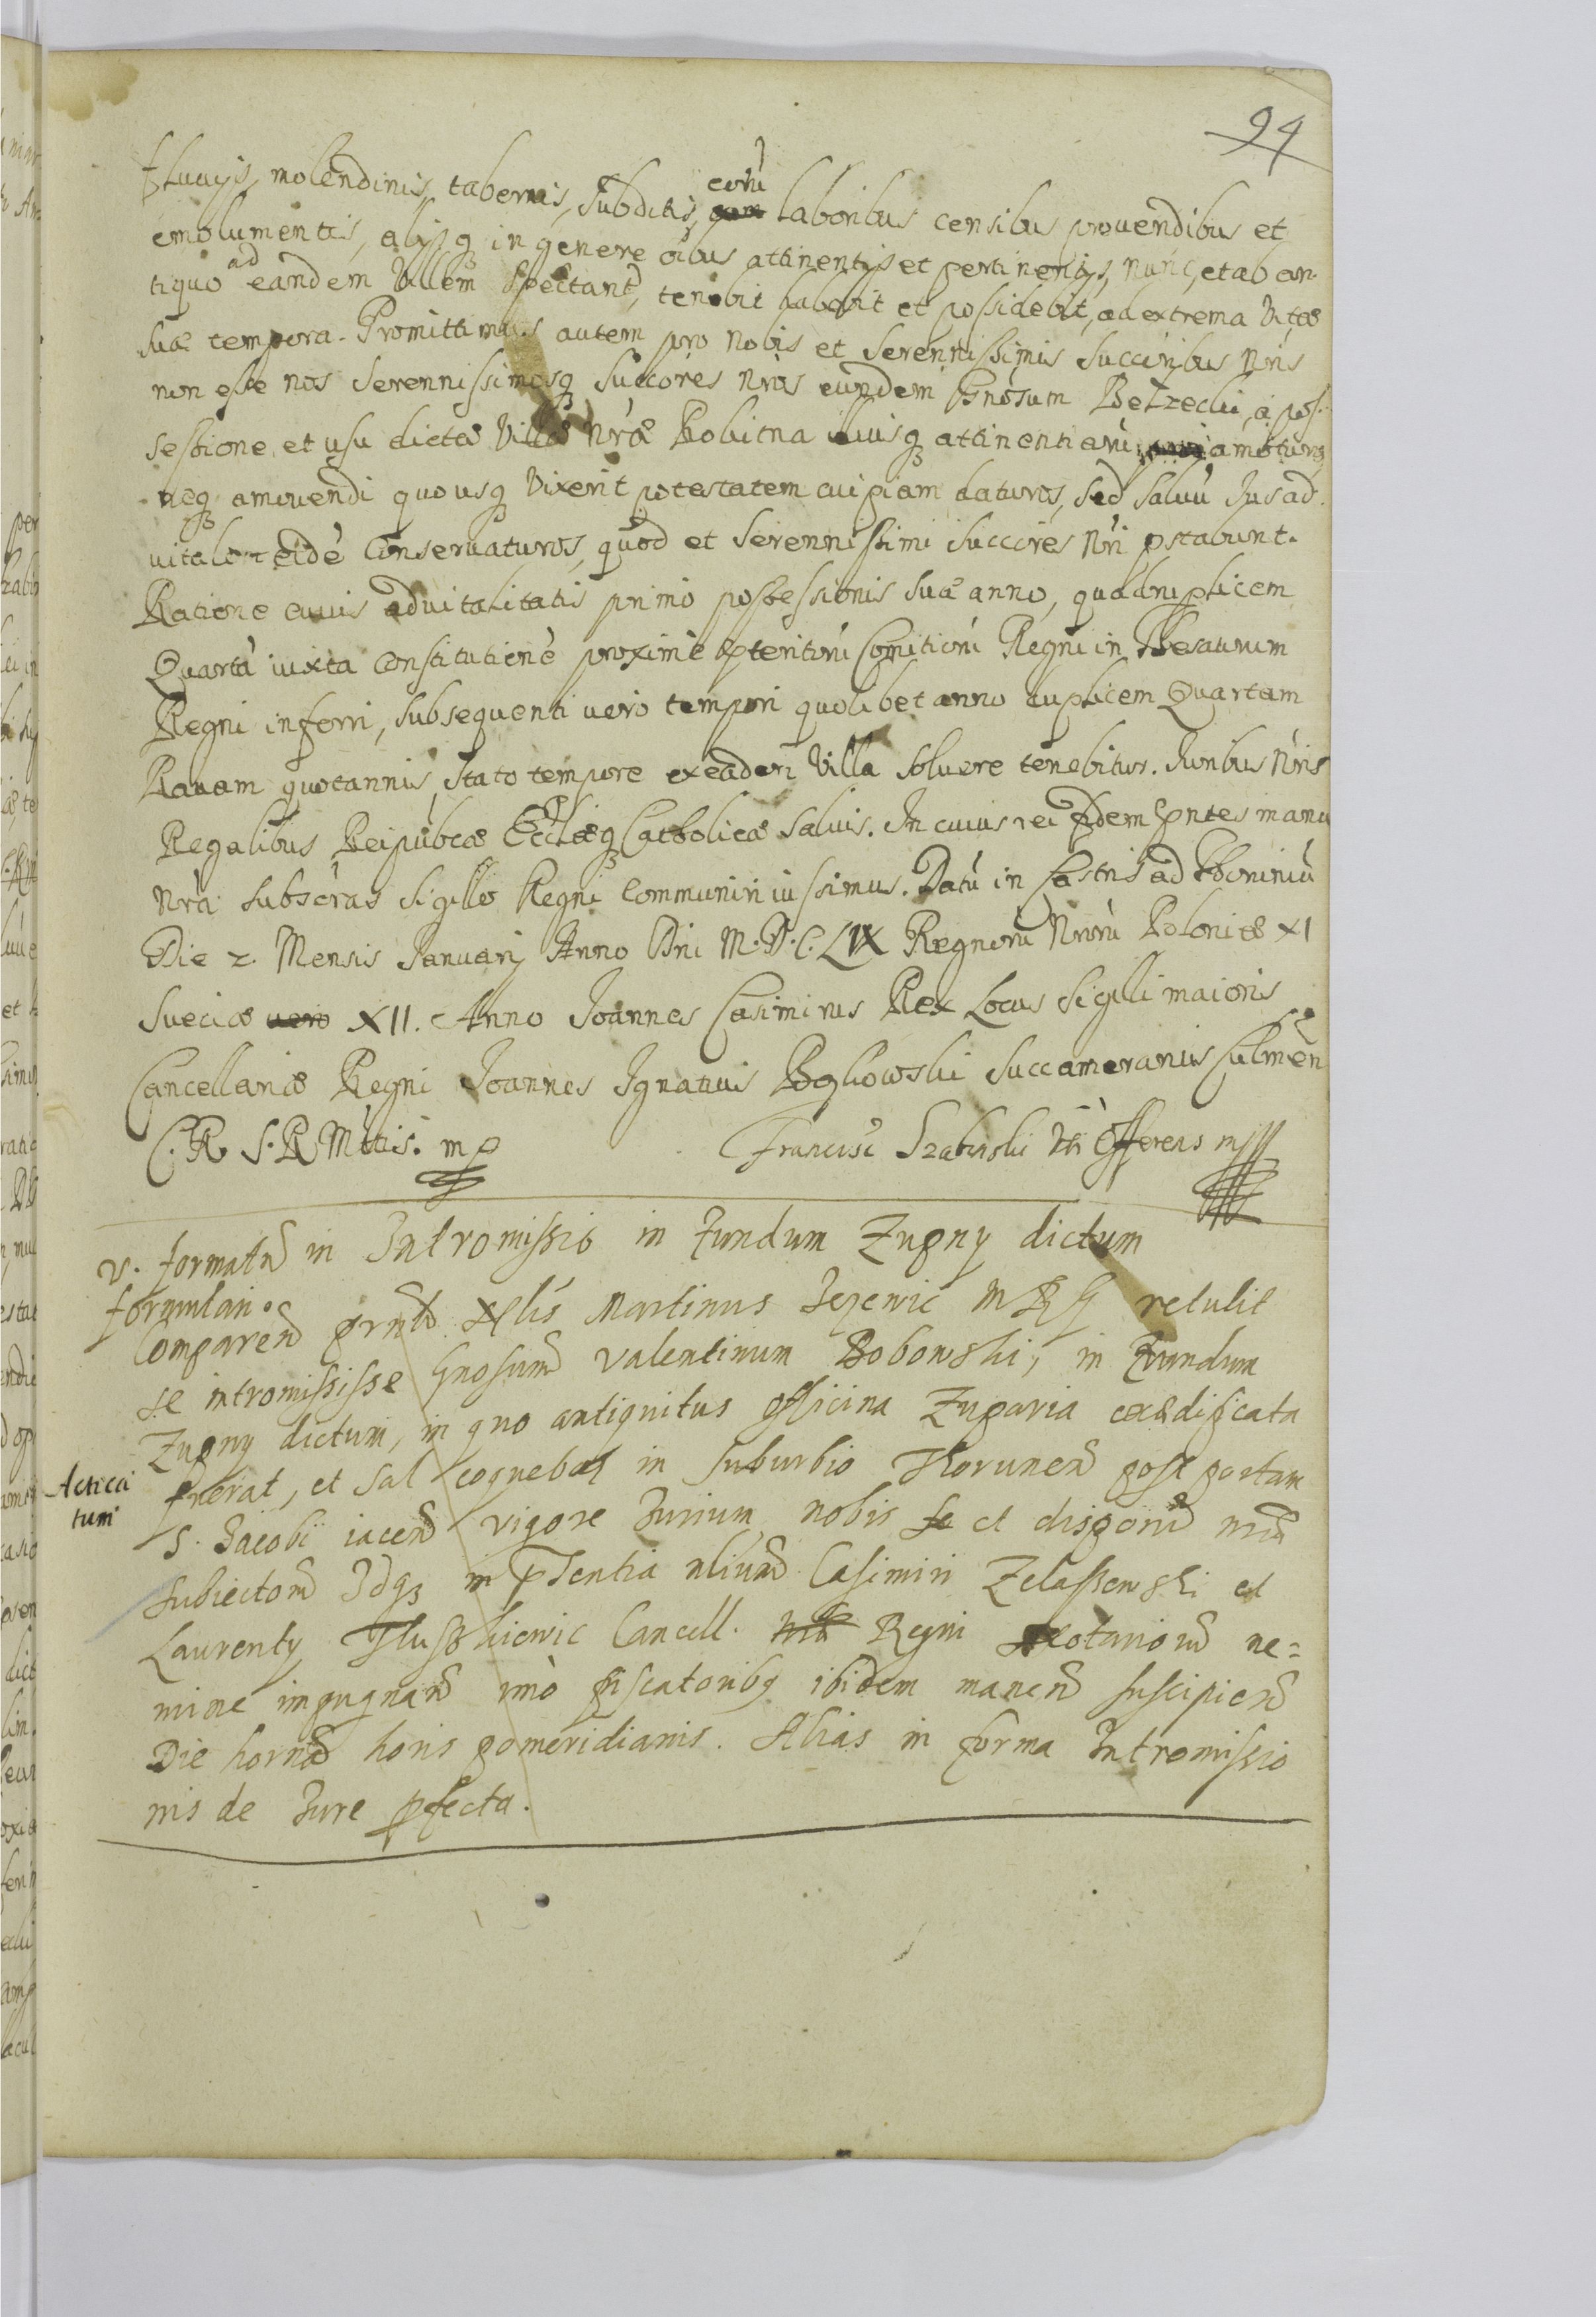 94
fluuijs, molendinis, tabernis, subditis, eorũ laboribus censibus prouendibus et
emolumentis, alijsq in genere oĩbus attinentijs et pertinentijs, nunc, et ab an-
tiquo ad eandem Villam Spectanť, tenebit habebit et possidebit, ad extrema Vitæ
suæ tempora. Promittimus autem pro nobis et Serennissimis Succoribus Nris
non esse nos Serennissimosq Succores Nros eundem Gnosum Bełzecki, a pos-
sessione et usu dictæ Villæ Nræ Kobitna illiusq attinentiarũ amoturos
neq amouendi quousq Vixerit potestatem cuipiam daturos, sed saluũ Jus ad-
uitale eidẽ Conseruaturos, quod et Serennissimi Succores Nri pstabunt.
Ratione cuuis aduitalitatis primo possessionis suæ anno, quadruplicem
Quartã iuxta Constitutionẽ proximè pteritorũ Comitiorũ Regni in Thesaurum
Regni inferri, subsequenti uero tempori quolibet anno duplicem Quartam
Rauam quotannis, stato tempore ex eadem Villa soluere tenebitur. Juribus Nris
Regalibus Reipubcæ Ecclæq Catholicæ saluis. In cuius rei fidem pntes manu
Nra subscras Sigillo Regni Communiri iussimus. Datũ in Castris ad Thoruniũ
Die 2. Mensis Januarij Anno Dni M.D.C.LIX Regnorũ Nrorũ Poloniæ XI
Sueciæ uero XII. Anno Joannes Casimirus Rex Locus Sigilli maioris
Cancellariæ Regni Joannes Ignatius Bąkowski Succamerarius Culmen
C.R. S.R Mttis. mp Francisc Szabinski Offerens mp
v. formatũ in Intromissio in Fundum Zupny dictum
formulari.
Comparenď prnť Martinus Jezewic M R G retulit
se intromississe Gnosum Valentinum Bobowski, in Fundum
Zupny dictum, in quo antiquitus officina Zuparia exædificata
Acticatum
fuerat, et sal coquebat in suburbio Thorunenď post portam
S. Jacobi iacenď vigore Jurium nobis se et disponď nrũ
subiectorũ Idq in pſentia Casimiri Zelassewski et
Laurenty Thusskiewic Cancell. Regni Notariorũ ne=
mine impugnanď imò piscatoribq ibidem manenď suscipienď
Die hornď horis pomeridianis. Alias in forma Intromissio
nis de Jure pfecta.